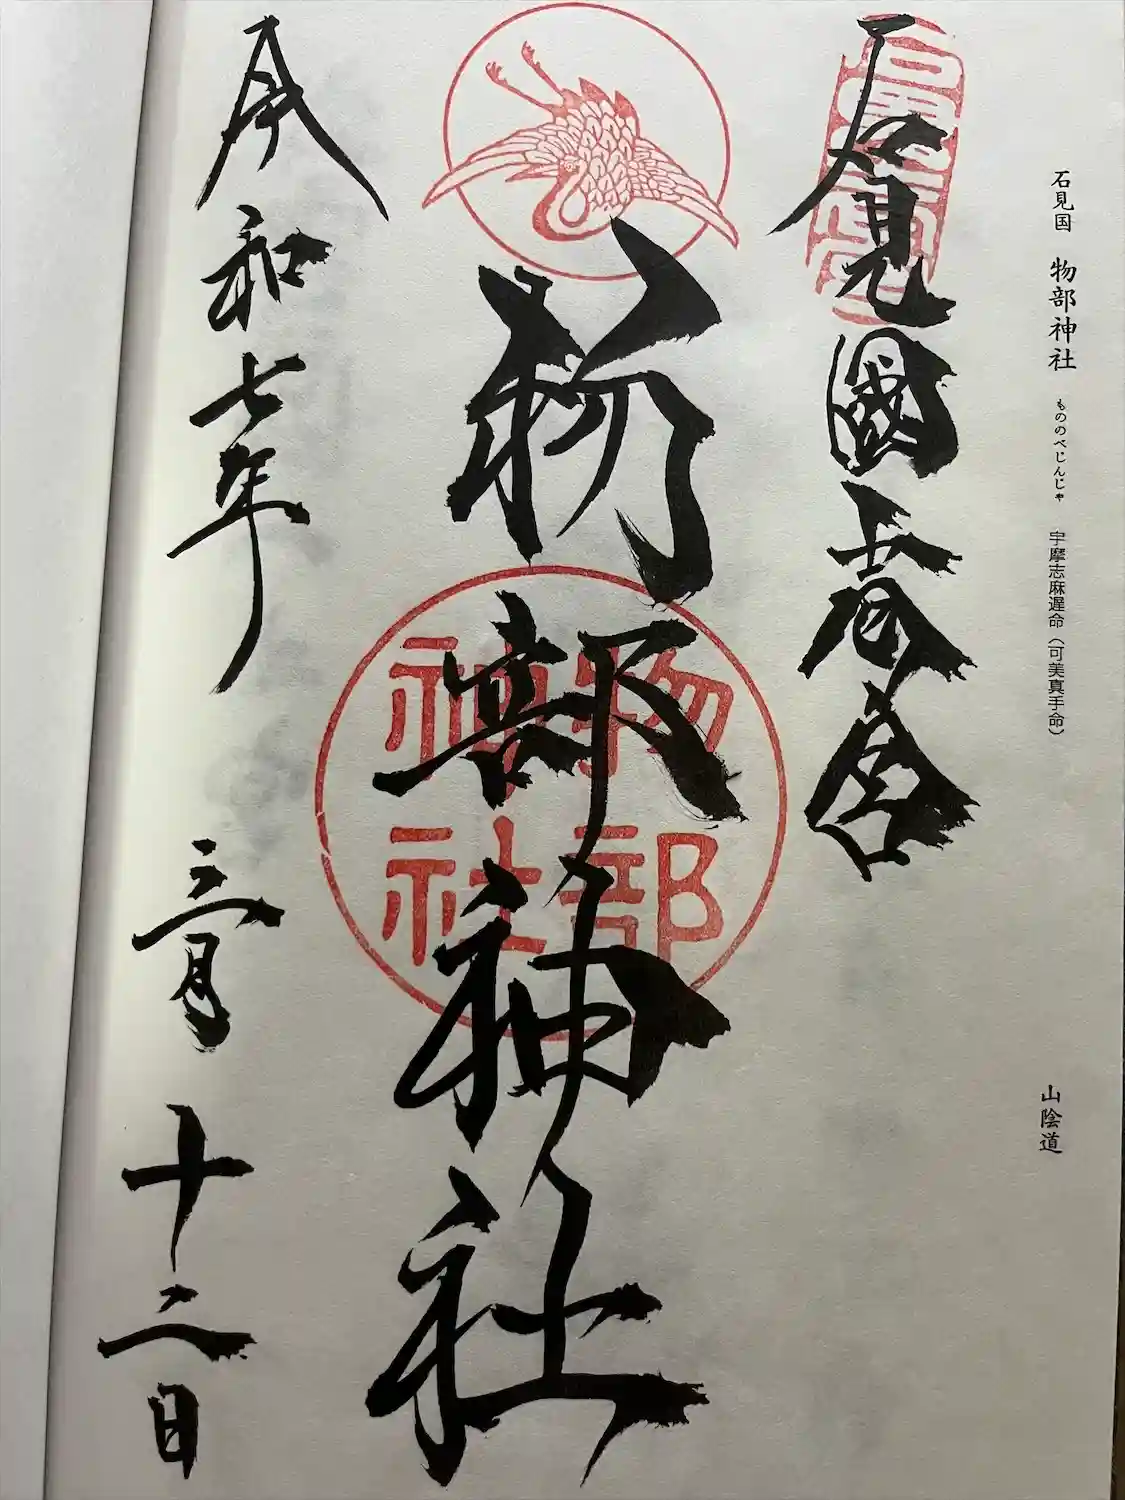 石見国　物部神社　もののべじんじゃ　宇摩志麻遅命（可美真手命）　山陰道
石見國壹宮
物部神社
物部
神社
令和七年三月十二日